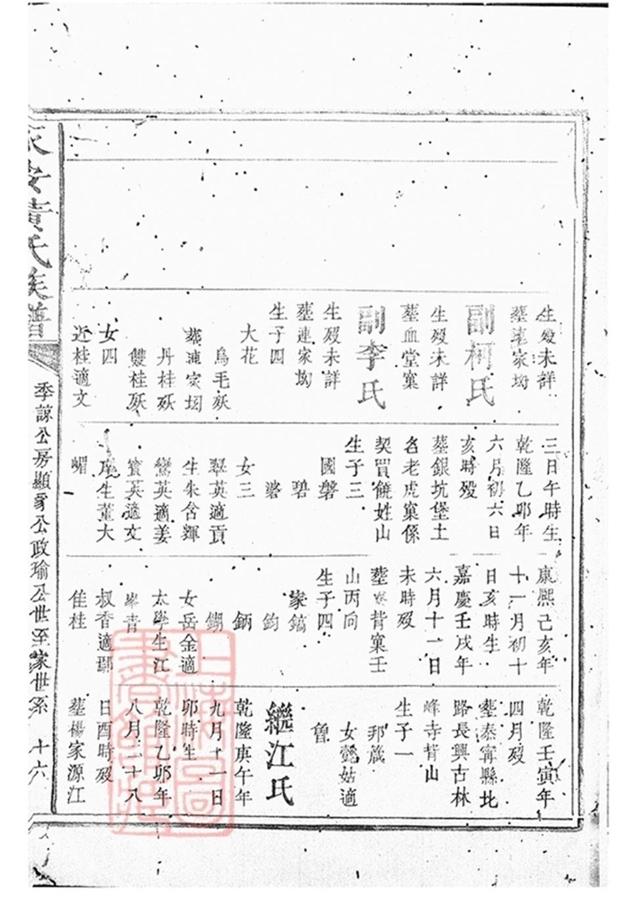 生歿未詳
墓連家坳
副柯氏
生歿未詳
墓血堂窠
副李氏
生歿未詳
墓連家坳
生子四
大花
烏毛
墓連家坳
丹桂
雙桂
女四
近桂適文
三日午時生
乾隆乙卯年
六月初六日
亥時歿
墓銀坑堡土
名老虎窠係
契買饒姓山
生子三
國磐
碧
女三
翠英適貢
生朱含輝
鸞英適姜
寶英適文
庠生董大
嵋
康熙己亥年
十一月初十
日亥時生
嘉慶壬戌年
六月十一日
未時歿
背窠壬
山丙向
生子四
家鎬
鈞
鈵
女岳金適
太學生江
峯青
叔香適
佳桂
乾隆壬寅年
四月歿
墓泰寧縣北
路長興古林
峰寺背山
生子一
女 姑適
魯
繼江氏
乾隆庚午年
九月十一日
卯時生
乾隆乙卯年
八月二十八
日酉時歿
墓楊家源江
永安黃氏族譜
季諒公房顯 公政瑜公世至家世系
十六